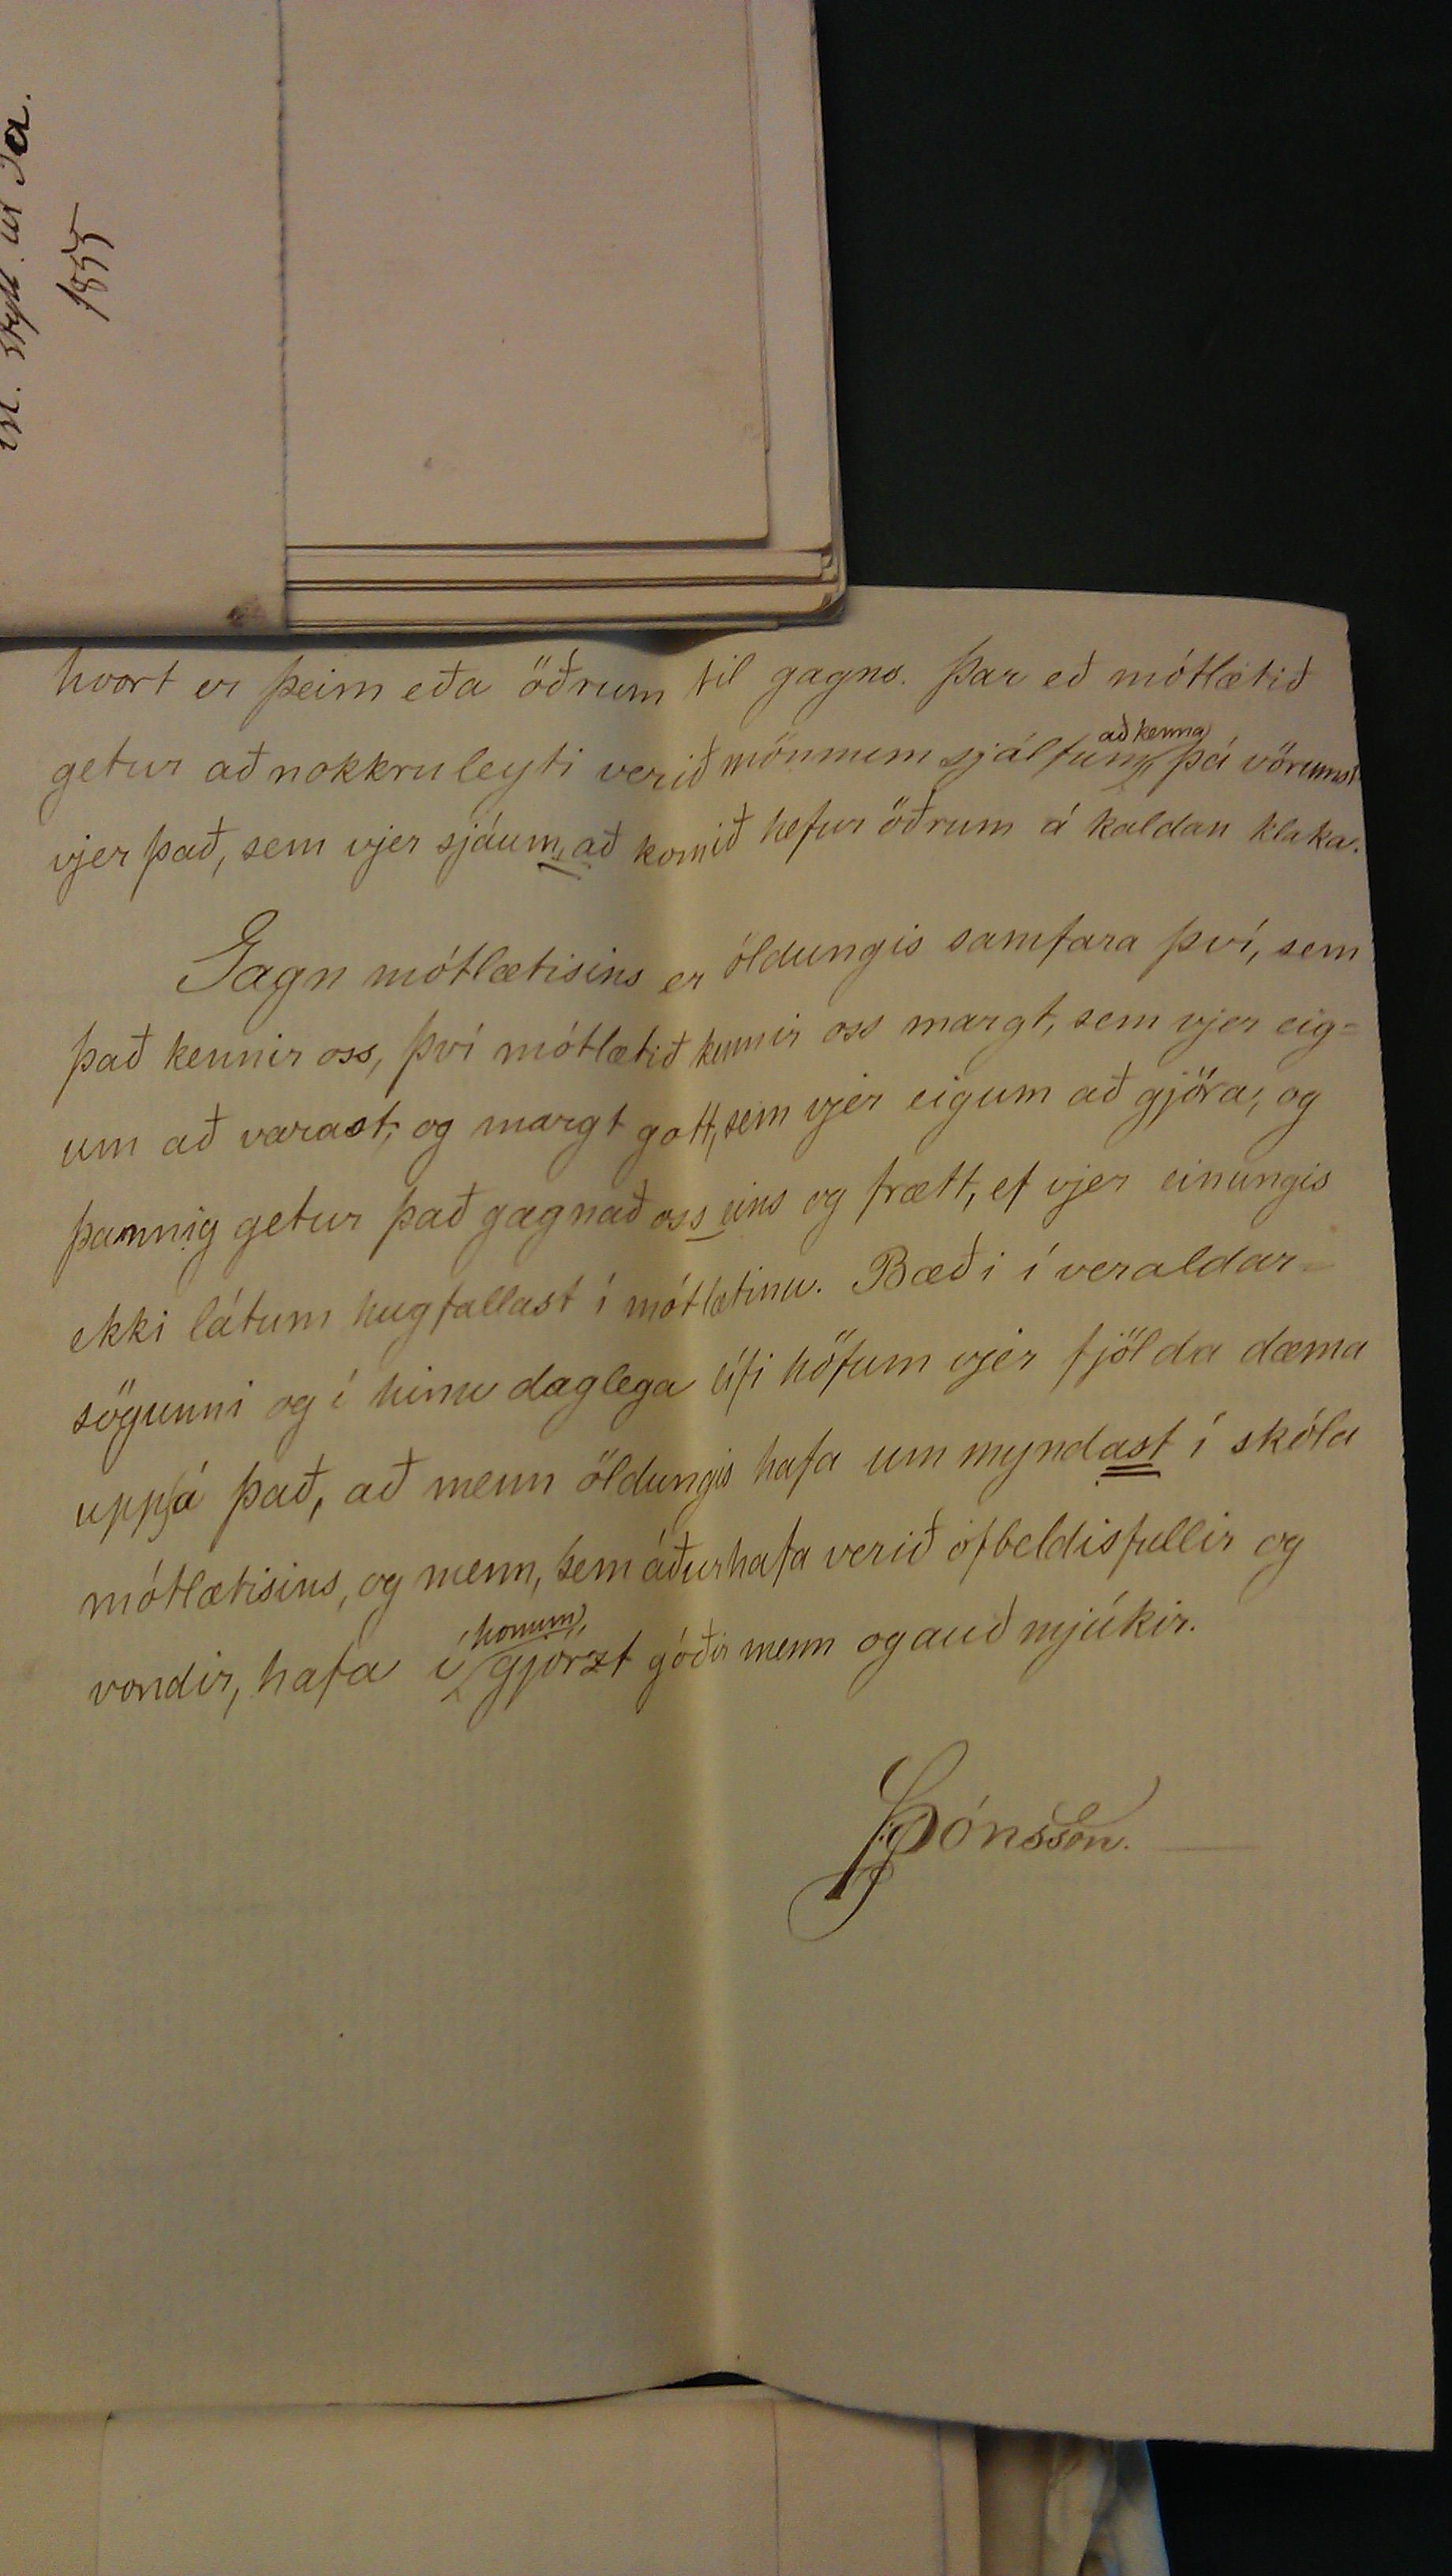 ísl. stýll. út Ia.
1855
hvort er þeim eða öðrum til gagns. Þar eð mótlætið
að kenna
getur að nokkru leyti verið mönnum sjálfum, þá vörumst
vjer það, sem vjer sjáum, að komið hefur öðrum á kaldan klaka.
Gagn mótlætisins er öldungis samfara því, sem
það kennir oss, því mótlætið kennir oss margt, sem vjer eig=
um að varast, og margt gott, sem vjer eigum að gjöra, og
þannig getur það gagnað oss eins og frætt, ef vjer einungis
ekki látum hugfallast í mótlætinu. Bæði í veraldar=
sögunni og í hinu daglega lífi höfum vjer fjölda dæma
uppá það, að menn öldungis hafa um myndast í skóla
mótlætisins, og menn, sem áður hafa verið ofbeldisfullir og
honum
vondir, hafa í gjörzt góðir menn og auðmjúkir.
Jónsson.